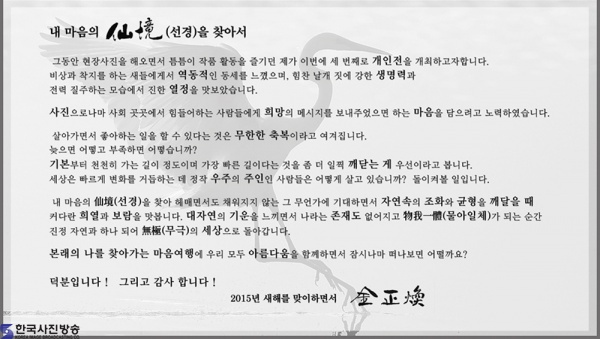 내 마음의 仙境(선경)을 찾아서
그동안 현장사진을 해오면서 틈틈이 작품 활동을 즐기던 제가 이번에 세 번째로 개인전을 개최하고자합니다.
비상과 착지를 하는 새들에게서 역동적인 동세를 느꼈으며, 힘찬 날개 짓에 강한 생명력과
전력 질주하는 모습에서 진한 열정을 맛보았습니다.
사진으로나마 사회 곳곳에서 힘들어하는 사람들에게 희망의 메시지를 보내주었으면 하는 마음을 담으려고 노력하였습니다.
살아가면서 좋아하는 일을 할 수 있다는 것은 무한한 축복이라고 여겨집니다.
늦으면 어떻고 부족하면 어떻습니까?
기본부터 천천히 가는 길이 정도이며 가장 빠른 길이다는 것을 좀 더 일찍 깨닫는 게 우선이라고 봅니다.
세상은 빠르게 변화를 거듭하는 데 정작 우주의 주인인 사람들은 어떻게 살고 있습니까? 돌이켜볼 일입니다.
내 마음의 仙境(선경)을 찾아 헤매면서도 채워지지 않는 그 무언가에 기대하면서 자연속의 조화와 균형을 깨달을 때
커다란 희열과 보람을 맛봅니다. 대자연의 기운을 느끼면서 나라는 존재도 없어지고 物我一體(물아일체)가 되는 순간
진정 자연과 하나 되어 無極(무극)의 세상으로 돌아갑니다.
본래의 나를 찾아가는 마음여행에 우리 모두 아름다움을 함께하면서 잠시나마 떠나보면 어떨까요?
덕분입니다 ! 그리고 감사 합니다 !
2015년 새해를 맞이하면서 金正煥
한국사진방송
KOREA IMAGE BROADCASTING CO.